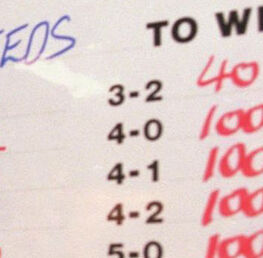 EEDS
TO WI
3-2 40
4-0 100
4-1 100
4-2 100
5-0 100